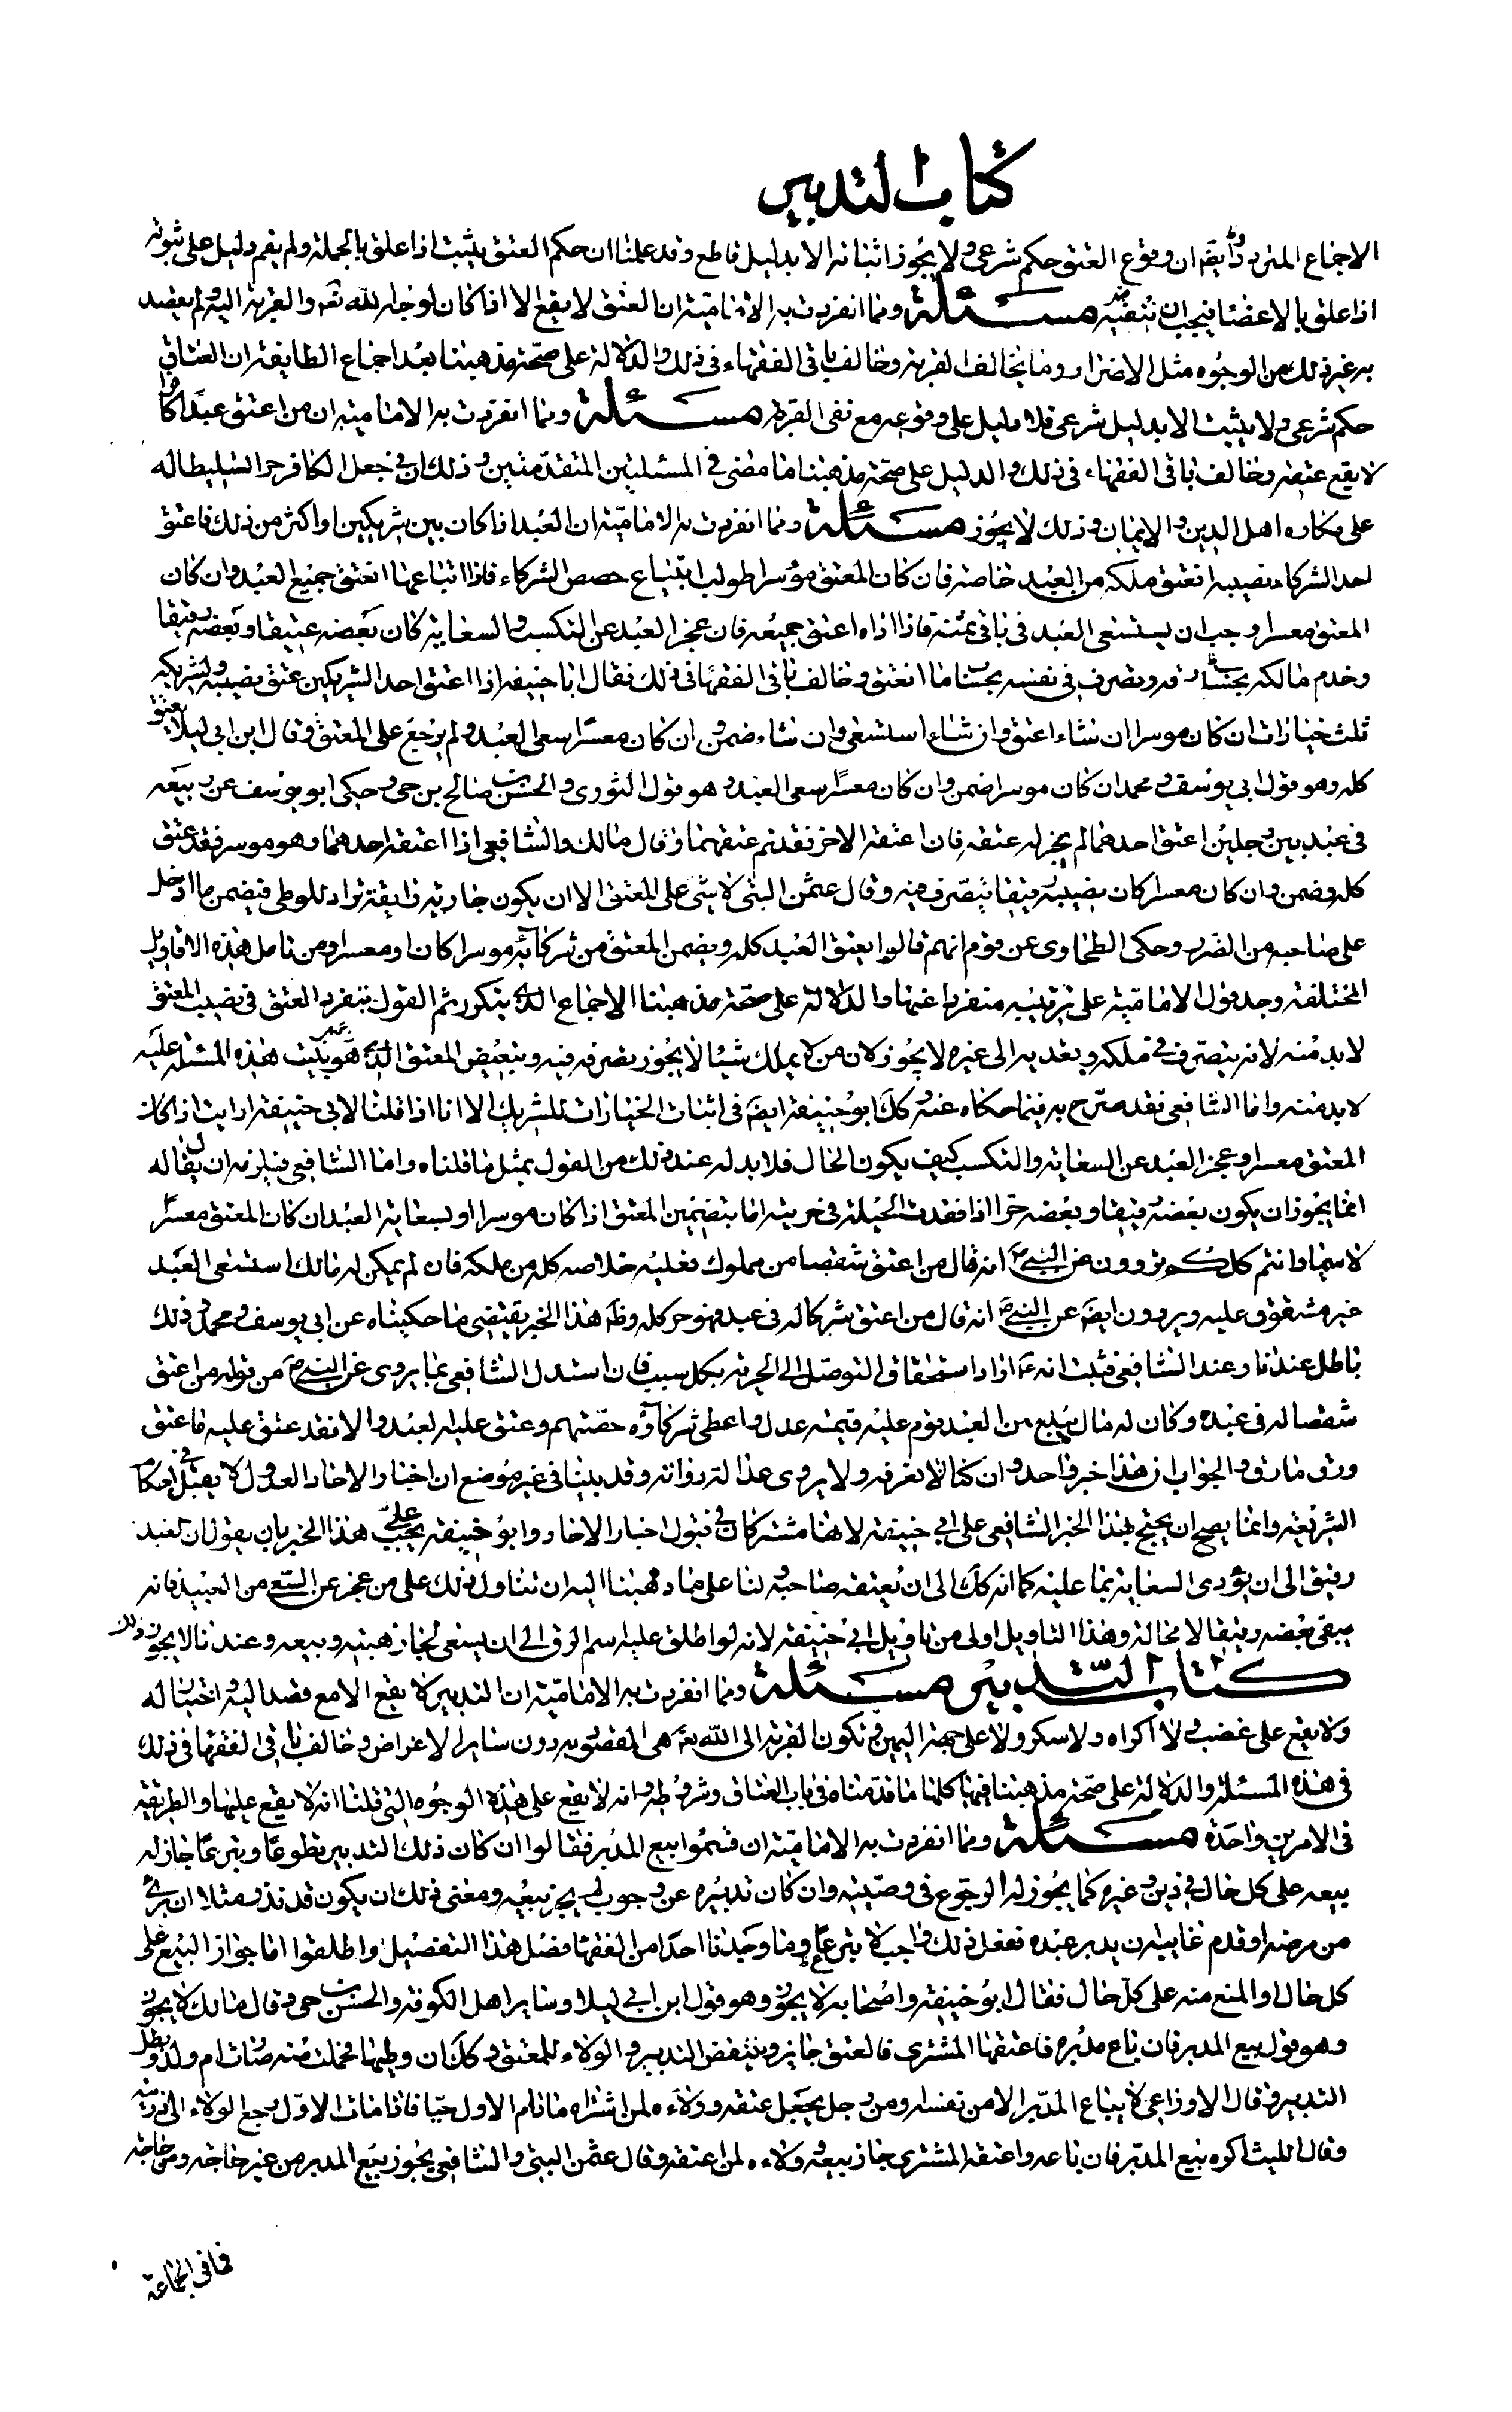 كتاب التدبير
الاجماع المتردد وايضا فان وقوع العتق حكم شرعى ولا يجوز اثباته الا بدليل قاطع وقد علمنا ان حكم العتق يثبت اذا علق بالجملة ولم يقم دليل على ثبوته
اذا علق بالاعضا فيجب ان ننفيه مسئلة ومما انفردت به الامامية ان العتق لا يقع الا اذا كان لوجه الله تعه والقربة اليه ولم يقصد
به غير ذلك من الوجوه مثل الاضرار وما يخالف القربة وخالف باقى الفقهاء فى ذلك والدلالة على صحة مذهبنا بعد اجماع الطايفة ان العتاق
حكم شرعى ولا يثبت الا بدليل شرعى فلا دليل على وقوعه مع نفى القربة مسئلة ومما انفردت به الامامية ان من اعتق عبدا كافرا
لا يقع عتقه وخالف باقى الفقهاء فى ذلك والدليل على صحة مذهبنا ما مضى فى المسئلتين المتقدمتين وذلك ان فى جعل الكافر حرا تسليطا له
على مكاره اهل الدين والايمان وذلك لا يجوز مسئلة ومما انفردت به الامامية ان العبد اذا كان بين شريكين او اكثر من ذلك فاعتق
احد الشركاء نصيبه انعتق ملكه من العبد خاصة فان كان المعتق موسرا طولب بابتياع حصص الشركاء فاذا ابتاعها انعتق جميع العبد وان كان
المعتق معسرا وجب ان يستسعى العبد فى باقى ثمنه فاذا اداه اعتق جميعه فان عجز العبد عن التكسب والسعاية كان بعضه عتيقا وبعضه رقيقا
وخدم مالكه بحساب رقه وتصرف فى نفسه بحساب ما انعتق وخالف باقى الفقها فى ذلك فقال ابا حنيفة اذا اعتق احد الشريكين عتق نصيبه ولشريكه
ثلث خيارات ان كان موسرا ان شاء اعتق وان شاء استسعى وان شاء ضمن وان كان معسرا سعى العبد ولم يرجع على المعتق وقال ابن ابى ليلا يعتق
كله وهو قول ابى يوسف ومحمد ان كان موسرا ضمن وان كان معسرا سعى العبد وهو قول الثورى والحسن بن صالح بن حى وحكى ابو يوسف عن ربيعه
فى عبد بين رجلين اعتق احدهما لم يجز له عتقه فان اعتقه الاخر فقد تم عتقهما وقال مالك والشافعى اذا اعتقه احدهما وهو موسر فقد عتق
كله وضمن وان كان معسرا كان نصيبه رقيقا يتصرف فيه وقال عثمن البتى لا شى على المعتق الا ان يكون جارية رايقة تراد للوطى فيضمن ما ادخل
على صاحبه من الضرر وحكى الطحاوى عن قوم انهم قالوا يعتق العبد كله ويضمن المعتق من شركائه موسرا كان او معسرا ومن تامل هذه الاقاويل
المختلفة وجد قول الامامية على ترتيبه منفردا عنها والدلالة على صحة مذهبنا الاجماع الذى يتكرر ثم القول بتفرد العتق فى نصيب المعتق
لا بد منه لانه يتصرف فى ملكه وتعديه الى غيره لا يجوز لان من لا يملك شيئا لا يجوز تصرفه فيه وتبعيض المعتق الذى هو بنيت هذه المسئلة عليه
لا بد منه واما الشافعى فقد صرح به فيما حكاه عنه وكك ابو حنيفة ايضا فى اثبات الخيارات للشريك الا انا اذا قلنا لابى حنيفة ارايت اذا كان
المعتق معسرا وعجز العبد عن السعاية والتكسب كيف يكون الحال فلا بد له عند ذلك من القول بمثل ما قلناه واما الشافعى فيلزمه ان يقال له
انما يجوز ان يكون بعضه رقيقا وبعضه حرا اذا فقدت الحيلة فى حريته اما بتضمين المعتق اذا كان موسرا او بسعاية العبد ان كان المعتق معسرا
لا سيما وانتم كلكم تروون عن النبى ص انه قال من اعتق شقصا من مملوك فعليه خلاصه كله من ملكه فان لم يمكن له مالك استسعى العبد
غير مشقوق عليه ويروون ايضا عن النبى ص انه قال من اعتق شركا له فى عبد فهو حر كله وظاهر هذا الخبر يقتضى ما حكيناه عن ابى يوسف ومحمد وذلك
باطل عندنا وعند الشافعى فثبت انه ع اراد استحقاق التوصل الى الحرية بكل سبب فان استدل الشافعى بما يروى عن النبى ص من قوله من اعتق
شقصا له فى عبده وكان له مال يبلغ من العبد قوم عليه قيمة عدل واعطى شركاؤه حصتهم وعتق عليه العبد والا فقد عتق عليه ما عتق
ورق ما رق والجواب ان هذا خبر واحد وان كنا لا نعرفه ولا يروى عدالة رواته وقد بينا فى غير موضع ان اخبار الاحاد العدول لا يقبل فى احكام
الشريعة وانما يصح ان يحتج بهذا الخبر الشافعى على ابى حنيفة لانهما مشتركان فى قبول اخبار الاحاد وابو حنيفة يجيب على هذا الخبر بان يقول ان العبد
رقيق الى ان يؤدى السعاية بما عليه كما انه كك الى ان يعتقه صاحبه ولنا على ما ذهبنا اليه ان نتناول ذلك على من عجز عن السعى من العبيد فانه
يبقى بعضه رقيقا لا محالة وهذا التاويل اولى من تاويل ابى حنيفة لانه لو اطلق عليه اسم الرق الى ان يسعى لجاز هبته وبيعه وعندنا لا يجوز ذلك
كتاب التدبير مسئلة ومما انفردت به الامامية ان التدبير لا يقع الا مع قصد اليه واختيار له
ولا يقع على غضب ولا اكراه ولا سكر ولا على جهة اليمين وتكون القربة الى الله تعه هى المقصود به دون ساير الاعراض وخالف باقى الفقها فى ذلك
فى هذه المسئلة والدلالة على صحة مذهبنا فيها كلما ما قدمناه فى باب العتاق وشروطه وانه لا يقع على هذه الوجوه التى قلنا انه لا يقع عليها والطريقة
فى الامرين واحدة مسئلة ومما انفردت به الامامية ان قسموا بيع المدبر فقالوا ان كان ذلك التدبير تطوعا وتبرعا جاز له
بيعه على كل حال فى دين وغيره كما يجوز له الرجوع فى وصيته وان كان تدبيره عن وجوب لم يجز بيعه ومعنى ذلك ان يكون قد نذر مثلا ان برئ
من مرضه او قدم غايبه ان يدبر عبده ففعل ذلك واجبا لا تبرعا وما وجدنا احدا من الفقها فصل هذا التفصيل واطلقوا اما جواز البيع على
كل حال او المنع منه على كل حال فقال ابو حنيفة واصحابه لا يجوز وهو قول ابن ابى ليلا وساير اهل الكوفة والحسن بن حى وقال مالك لا يجوز
وهو قول بيع المدبر فان باع مدبره فاعتقها المشترى فالعتق جايز وينتقض التدبير والولاء للمعتق وكك ان وطيها فحملت منه صارت ام ولد وبطل
التدبير وقال الاوزاعى لا يباع المدبر الا من نفسه او من رجل يعجل عتقه وولاءه لمن اشتراه ما دام الاول حيا فاذا مات الاول رجع الولاء الى ورثته
وقال الليث اكره بيع المدبر فان باعه واعتقه المشترى جاز بيعه وولاءه لمن اعتقه وقال عثمن البتى والشافعى يجوز بيع المدبر من غير حاجة ومن حاجة